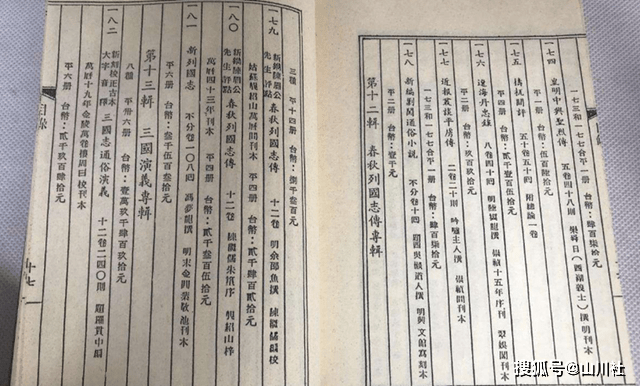 一七四 皇明中興聖烈傳 五卷四十八則 樂舜日(西湖義士)撰 明刊本
一七三和一七七合平一册 台幣:肆百柒拾元
一七五 檮杌閒評 五十卷五十回 附總論一卷
平四册 台幣:貳千壹百伍拾元
一七六 遼海丹忠錄 八卷四十回 明陸雲龍撰 崇禎十五年序刊 翠娛閣刊本
平二册 台幣:玖百玖拾元
一七七 近報叢譚平虜傳 二卷二十則 吟嘯主人撰 崇禎間刊本
一七三和一七七合平一册 台幣:肆百柒拾元
一七八 新編剿闖通俗小説 不分卷十回 題西吳懶道人撰 明興文館寫刻本
平二册 台幣:壹千元
第十二輯 春秋列國志傳專輯
三種 平十四册 台幣:捌千叁百元
一七九 新鐫陳眉公先生評點 春秋列國志傳 十二卷 明余邵魚撰 陳繼儒校
姑蘇龔紹山萬曆間刊本 平四册 台幣:貳千肆百貳拾元
一八〇 新鐫陳眉公先生評點 春秋列國志傳 十二卷 陳繼儒朱篁序 龔紹山梓
萬曆四十三年刊本 平四册 台幣:貳千叁百伍拾元
一八一 新列國志 不分卷一〇八回 馮夢龍撰 明末金閶葉敬池刊本
平六册 台幣:叁千伍百叁拾元
第十三輯 三國演義專輯
八種 平卅六册 台幣:壹萬玖千肆百玖拾元
一八二 新刻校正古本大字音釋 三國志通俗演義 十二卷二四〇則 題羅貫中編
萬曆十九年金陵萬卷樓周曰校刊本
平六册 台幣:貳千玖百肆拾元
目錄
十七
搜狐号@山川社